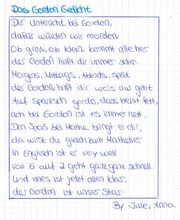 Das Gordon Gedicht
Der Unterricht bei Gordon,
dafür würden wir morden.
Ob gross, ob klein kommt alle her
der Gordon hilft dir immer sehr.
Morgens, Mittags, Abends, spät
der Gordon hilft dir weis nur geht
auf Spanisch gordo, dass heisst fett,
ach bei Gordon ist es immer nett.
Den Spass bei Mathe bringt er dir,
da wirst du gleich zum Mathetier
In Englisch ist er very well
von 5 auf 2 geht ganz ganz schnell.
Und eines ist jetzt allen klar,
der Gordon ist unser Star.
By Julie, Anna